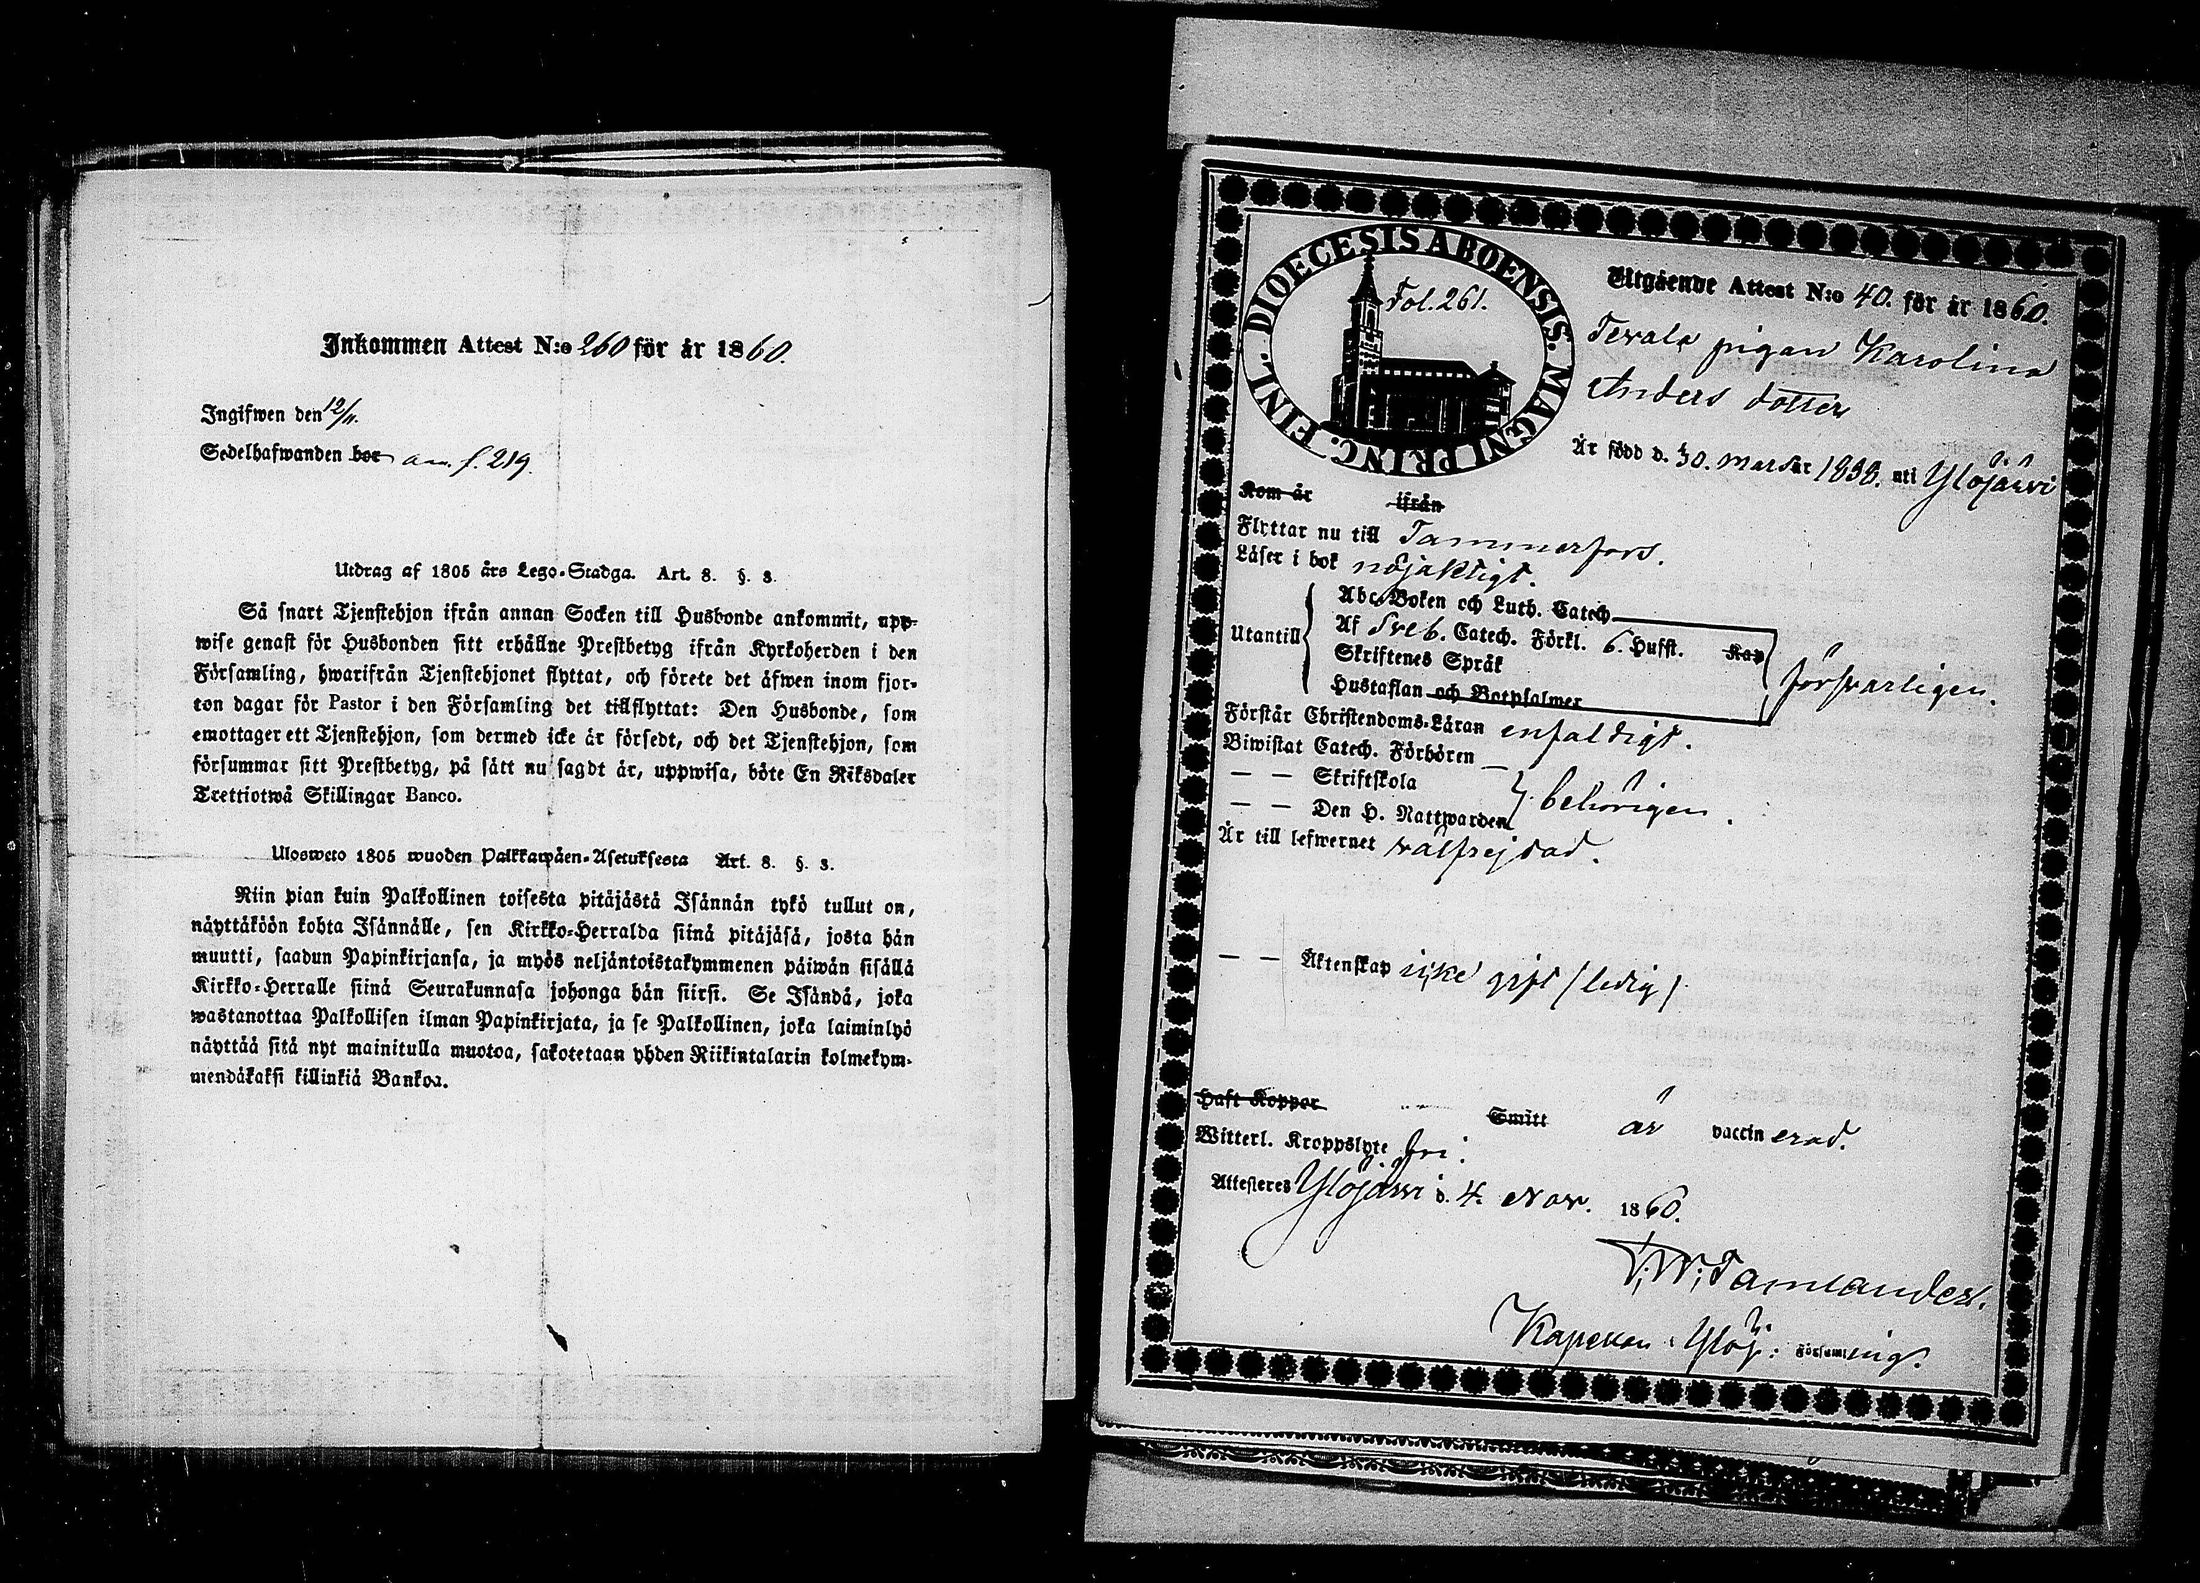 Inkommen Attest N:o 260 för år 1860.
Ingifwen den 12/11.
Sedelhafwanden bor ann. f. 219.
Utdrag af 1805 års Lego-Stadga. Art. 8. §. 3.
Så snart Tjenstehjon ifrån annan Socken till Husbonde ankommit, upp-
wise genast för Husbonden sitt erhållne Prestbetyg ifrån Kyrkoherden i den
Församling, hwarifrån Tjenstehjonet flyttat, och förete det äfwen inom fjor-
ton dagar för Pastor i den Församling det tillflyttat: Den Husbonde, som
emottager ett Tjenstehjon, som dermed icke är försedt, och det Tjenstehjon, som
försummar sitt Prestbetyg, på sätt nu sagdt är, uppwisa, böte En Riksdaler
Trettiotwå Skillingar Banco.
Ulosweto 1805 wuoden Palkkawäen-Asetuksesta Art. 8. §. 3.
Niin pian kuin Palkollinen toisesta pitäjästä Isännän tykö tullut on,
näyttäköön kohta Isännälle, sen Kirkko-Herralda siinä pitäjäsä, josta hän
muutti, saadun Papinkirjansa, ja myös neljäntoistakymmenen päiwän sisällä
Kirkko-Herralle siinä Seurakunnasa johonga hän siirsi. Se Isändä, joka
wastanottaa Palkollisen ilman Papinkirjata, ja se Palkollinen, joka laiminlyö
näyttää sitä nyt mainitulla muotoa, sakotetaan yhden Riikintalarin kolmekym-
mendäkaksi killinkiä Bankoa.
FINL. DIOECESIS ABOENSIS. MAGNI PRINC.
Fol. 261.
Utgående Attest N:o 40. för år 1860.
pigan Karolina
Anders dotter
Är född d. 30. mars år uti Ylöjärvi
Kom år ifrån
Flyttar nu till Tammerfors.
Läser i bok nöjaktigt.
Utantill
Abc-Boken och Luth. Catech
Af Sveb. Catech. Förkl. 6. Hufst. Kap
Skriftenes Språk
Hustaflan och Botpsalmer
försvarligen.
Förstår Christendoms-Läran enfaldigt.
Biwistat Catech. Förhören
— — Skriftskola
— — Den H. Nattwarden
behörigen.
Är till lefwernet välfrejdad.
— — Äktenskap icke gift (ledig)
Haft Koppor Smitt är vaccinerad.
Witterl. Kroppslyte fri.
Attesteras Ylöjärvi d. 4. Nov. 1860.
Kapellan i Ylöj: Församling.